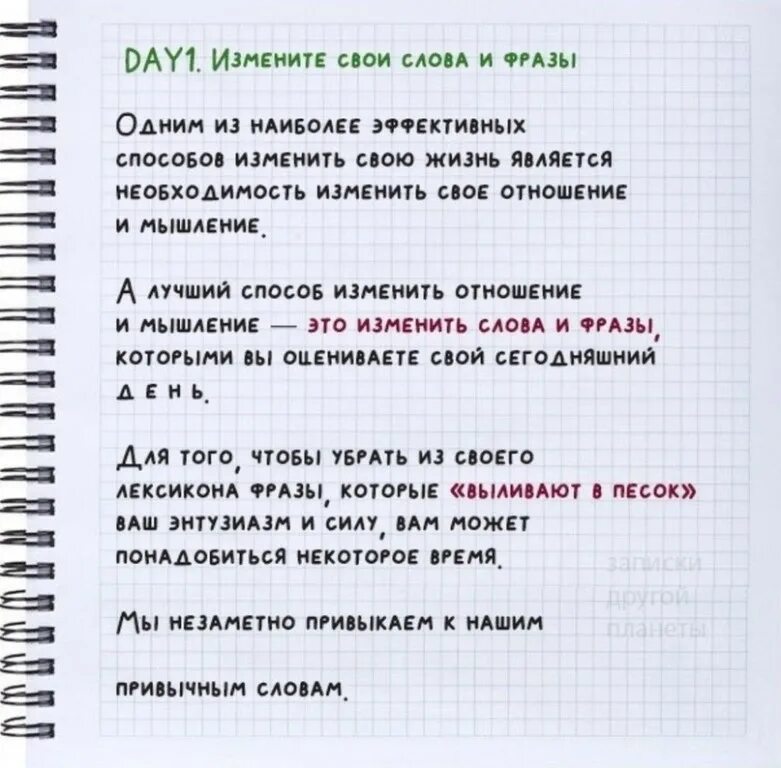 DAY1. Измените свои слова и фразы
Одним из наиболее эффективных
способов изменить свою жизнь является
необходимость изменить свое отношение
и мышление.
А лучший способ изменить отношение
и мышление — это изменить слова и фразы,
которыми вы оцениваете свой сегодняшний
д е н ь.
Для того, чтобы убрать из своего
лексикона фразы, которые «выливают в песок»
ваш энтузиазм и силу, вам может
понадобиться некоторое время.
записки
другой
планеты
Мы незаметно привыкаем к нашим
привычным словам.